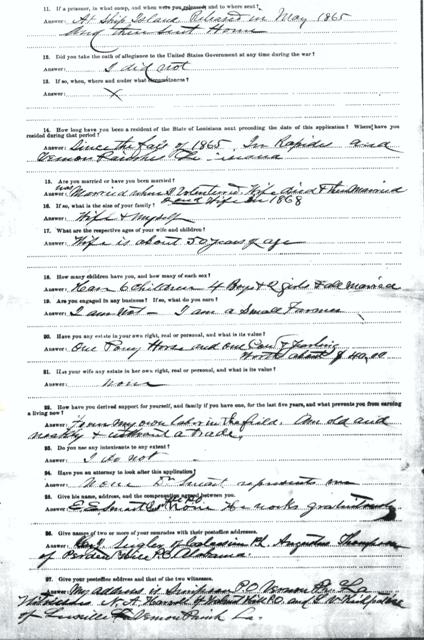 11. If a prisoner, in what camp, and when were you released and to where sent?
Answer: At Ship Island Released in May 1865
and then sent Home
12. Did you take the oath of allegiance to the United States Government at any time during the war?
Answer: I did not
13. If so, when, where and under what circumstances?
Answer: X
14. How long have you been a resident of the State of Louisiana next preceding the date of this application? Where have you
resided during that period?
Answer: Since the fall of 1865. In Rapides and
Vernon Parishes
15. Are you married or have you been married?
Answer: Was Married when I Volenteerd. Wife died & then Married
2nd Wife in 1868
16. If so, what is the size of your family?
Answer: Wife & Myself
17. What are the respective ages of your wife and children?
Answer: Wife is about 50 years of age
18. How many children have you, and how many of each sex?
Answer: Have 6 children 4 Boys & 2 girls & all married
19. Are you engaged in any business? If so, what do you earn?
Answer: I am not - I am a Small Farmer
20. Have you any estate in your own right, real or personal, and what is its value?
Answer: One Pony Horse and one Cow & Yearling
Worth about $ 40.00
21. Has your wife any estate in her own right, real or personal, and what is its value?
Answer: None
22. How have you derived support for yourself, and family if you have one, for the last five years, and what prevents you from earning
a living now?
Answer: my own labor in the field. Am old and
& without a Trade.
23. Do you use any intoxicants to any extent?
Answer: I do not
24. Have you an attorney to look after this application?
Answer: None Smart represents me
25. Give his name, address, and the compensation agreed between you.
Answer: E E Smart None He works
26. Give names of two or more of your comrades with their postoffice addresses.
Answer: Sigler Augustus Thompson
of P.O Alabama
27. Give your postoffice address and that of the two witnesses.
Answer: My address is Simpson P.O Vernon La
N. A. Walnut Hill P.O. and
of Leesville Vernon Parish La.